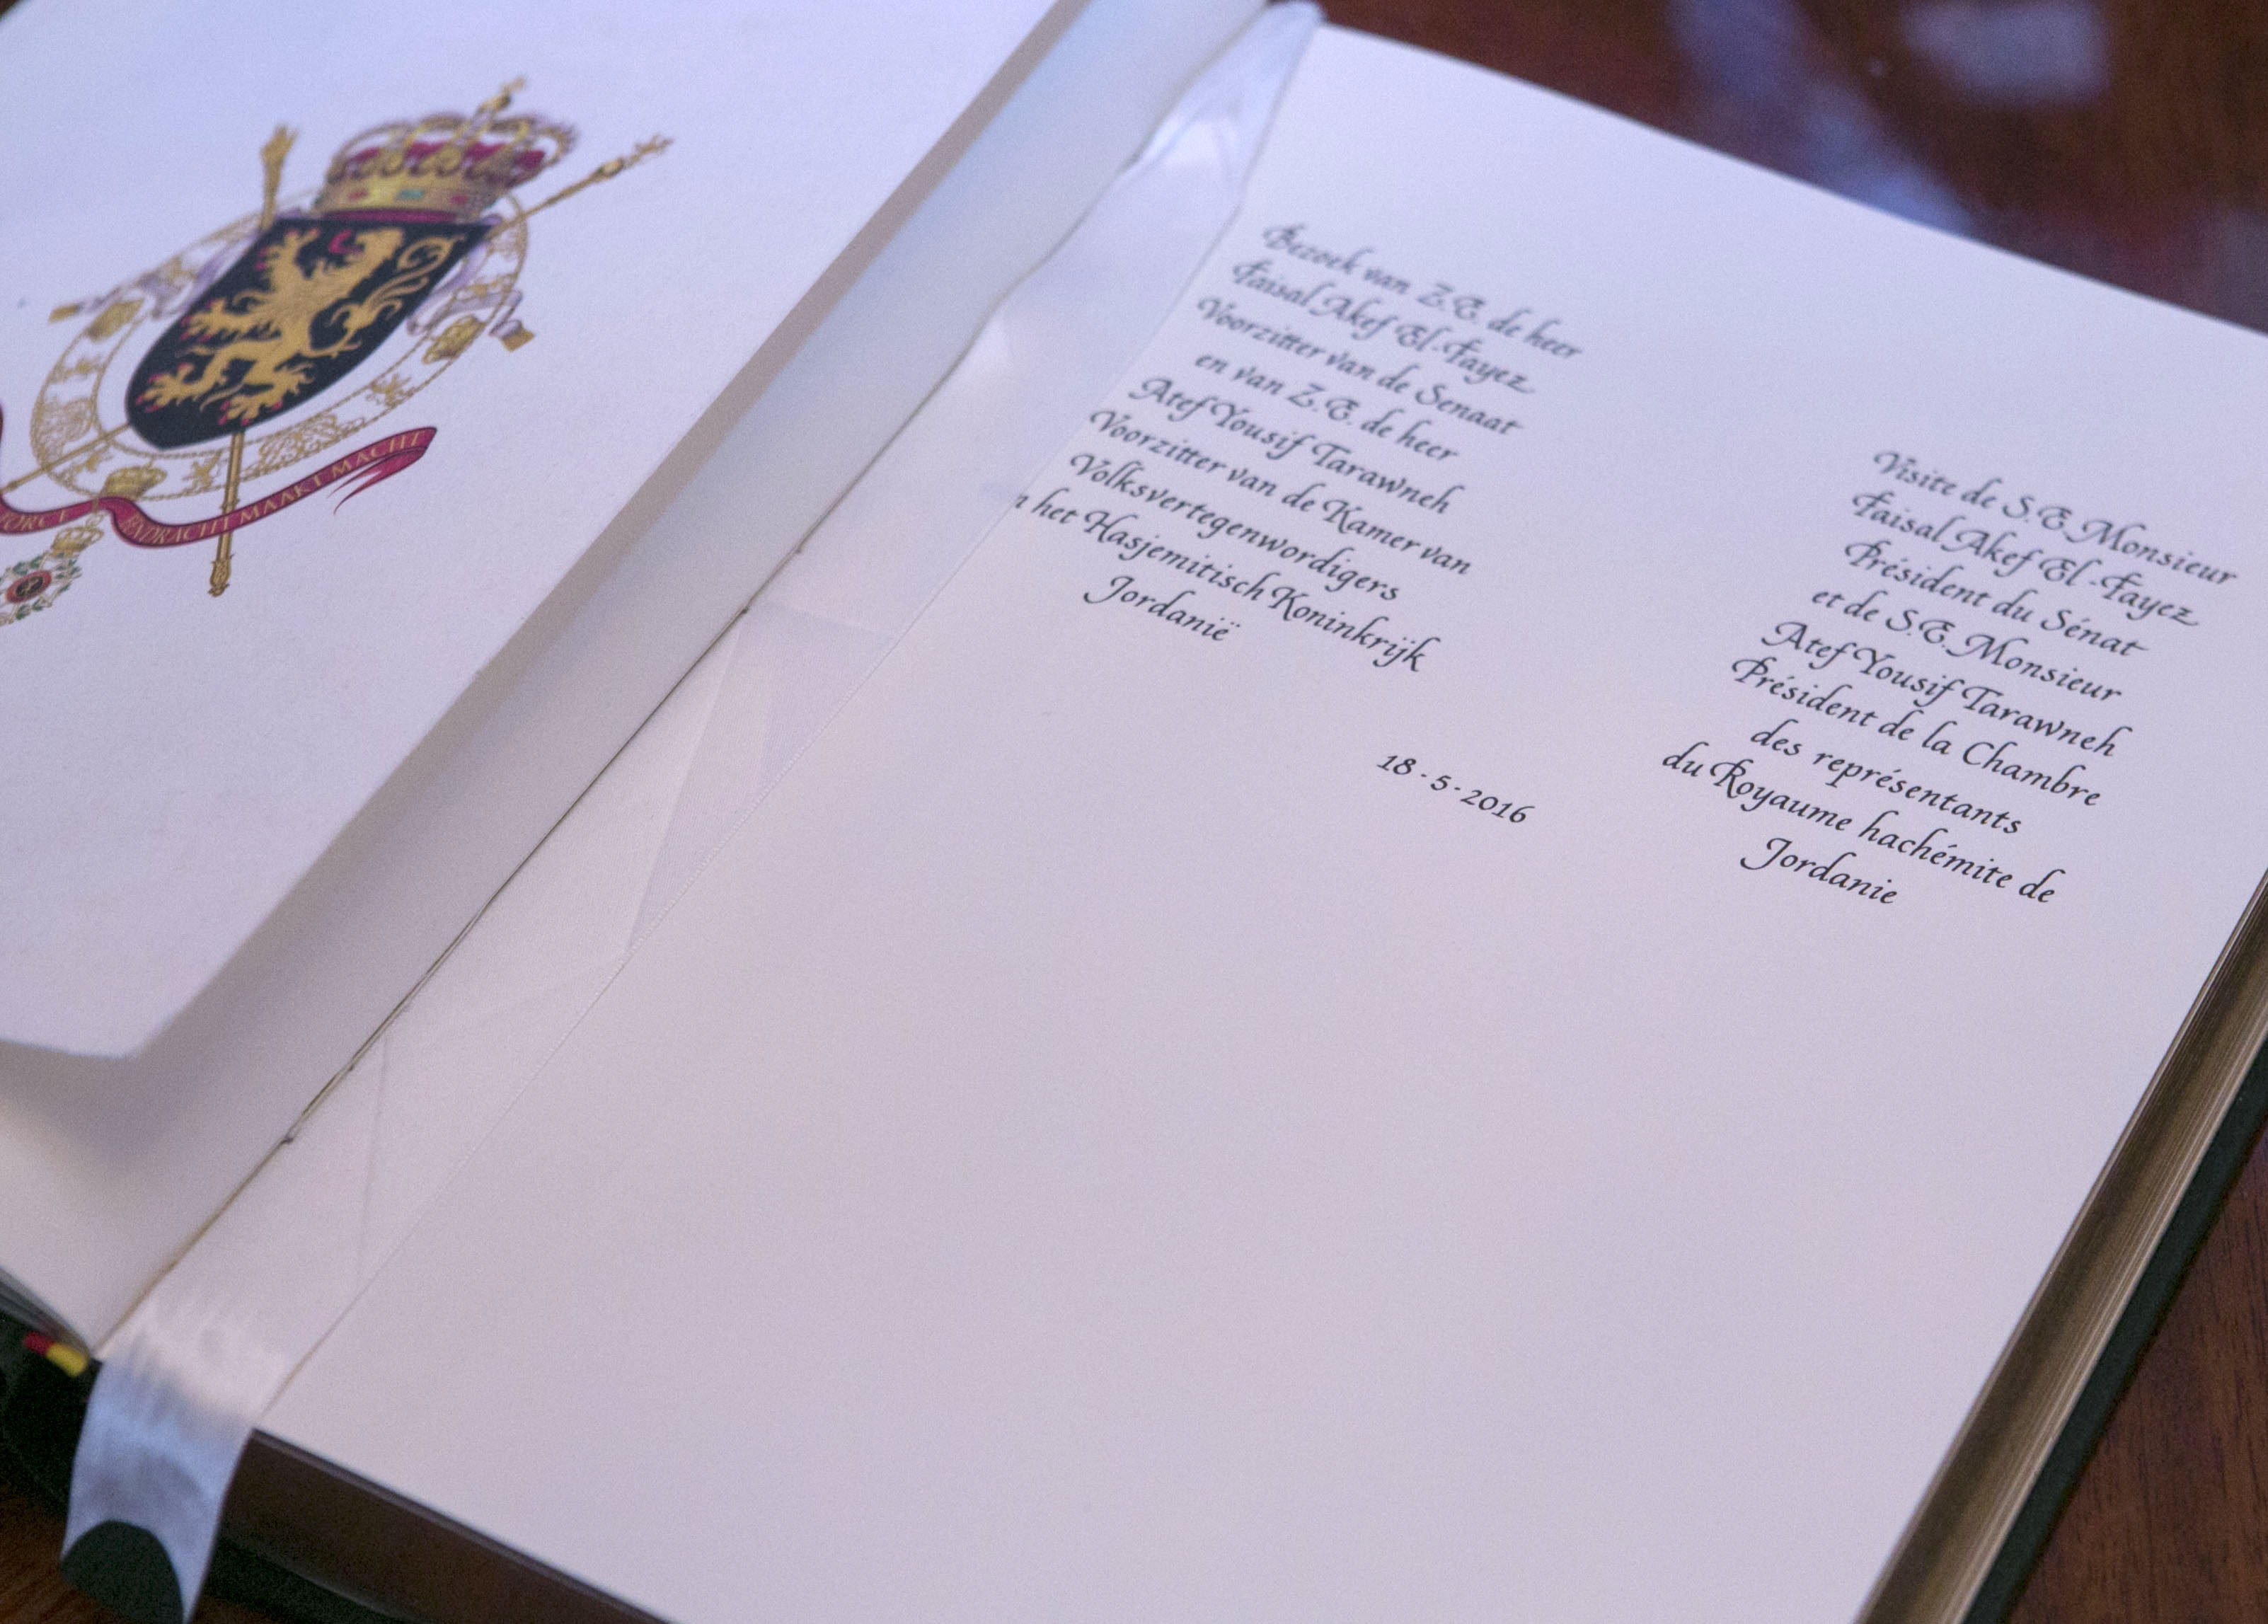 FORCE EENDRACHT MAAKT MACHT
Bezoek van Z.E. de heer
Faisal Akef El-Fayez
Voorzitter van de Senaat
en van Z.E. de heer
Atef Yousif Tarawneh
Voorzitter van de Kamer van
Volksvertegenwordigers
het Hasjemitisch Koninkrijk
Jordanië
18-5-2016
Visite de S.E. Monsieur
Faisal Akef El-Fayez
Président du Sénat
et de S.E. Monsieur
Atef Yousif Tarawneh
Président de la Chambre
des représentants
du Royaume hachémite de
Jordanie